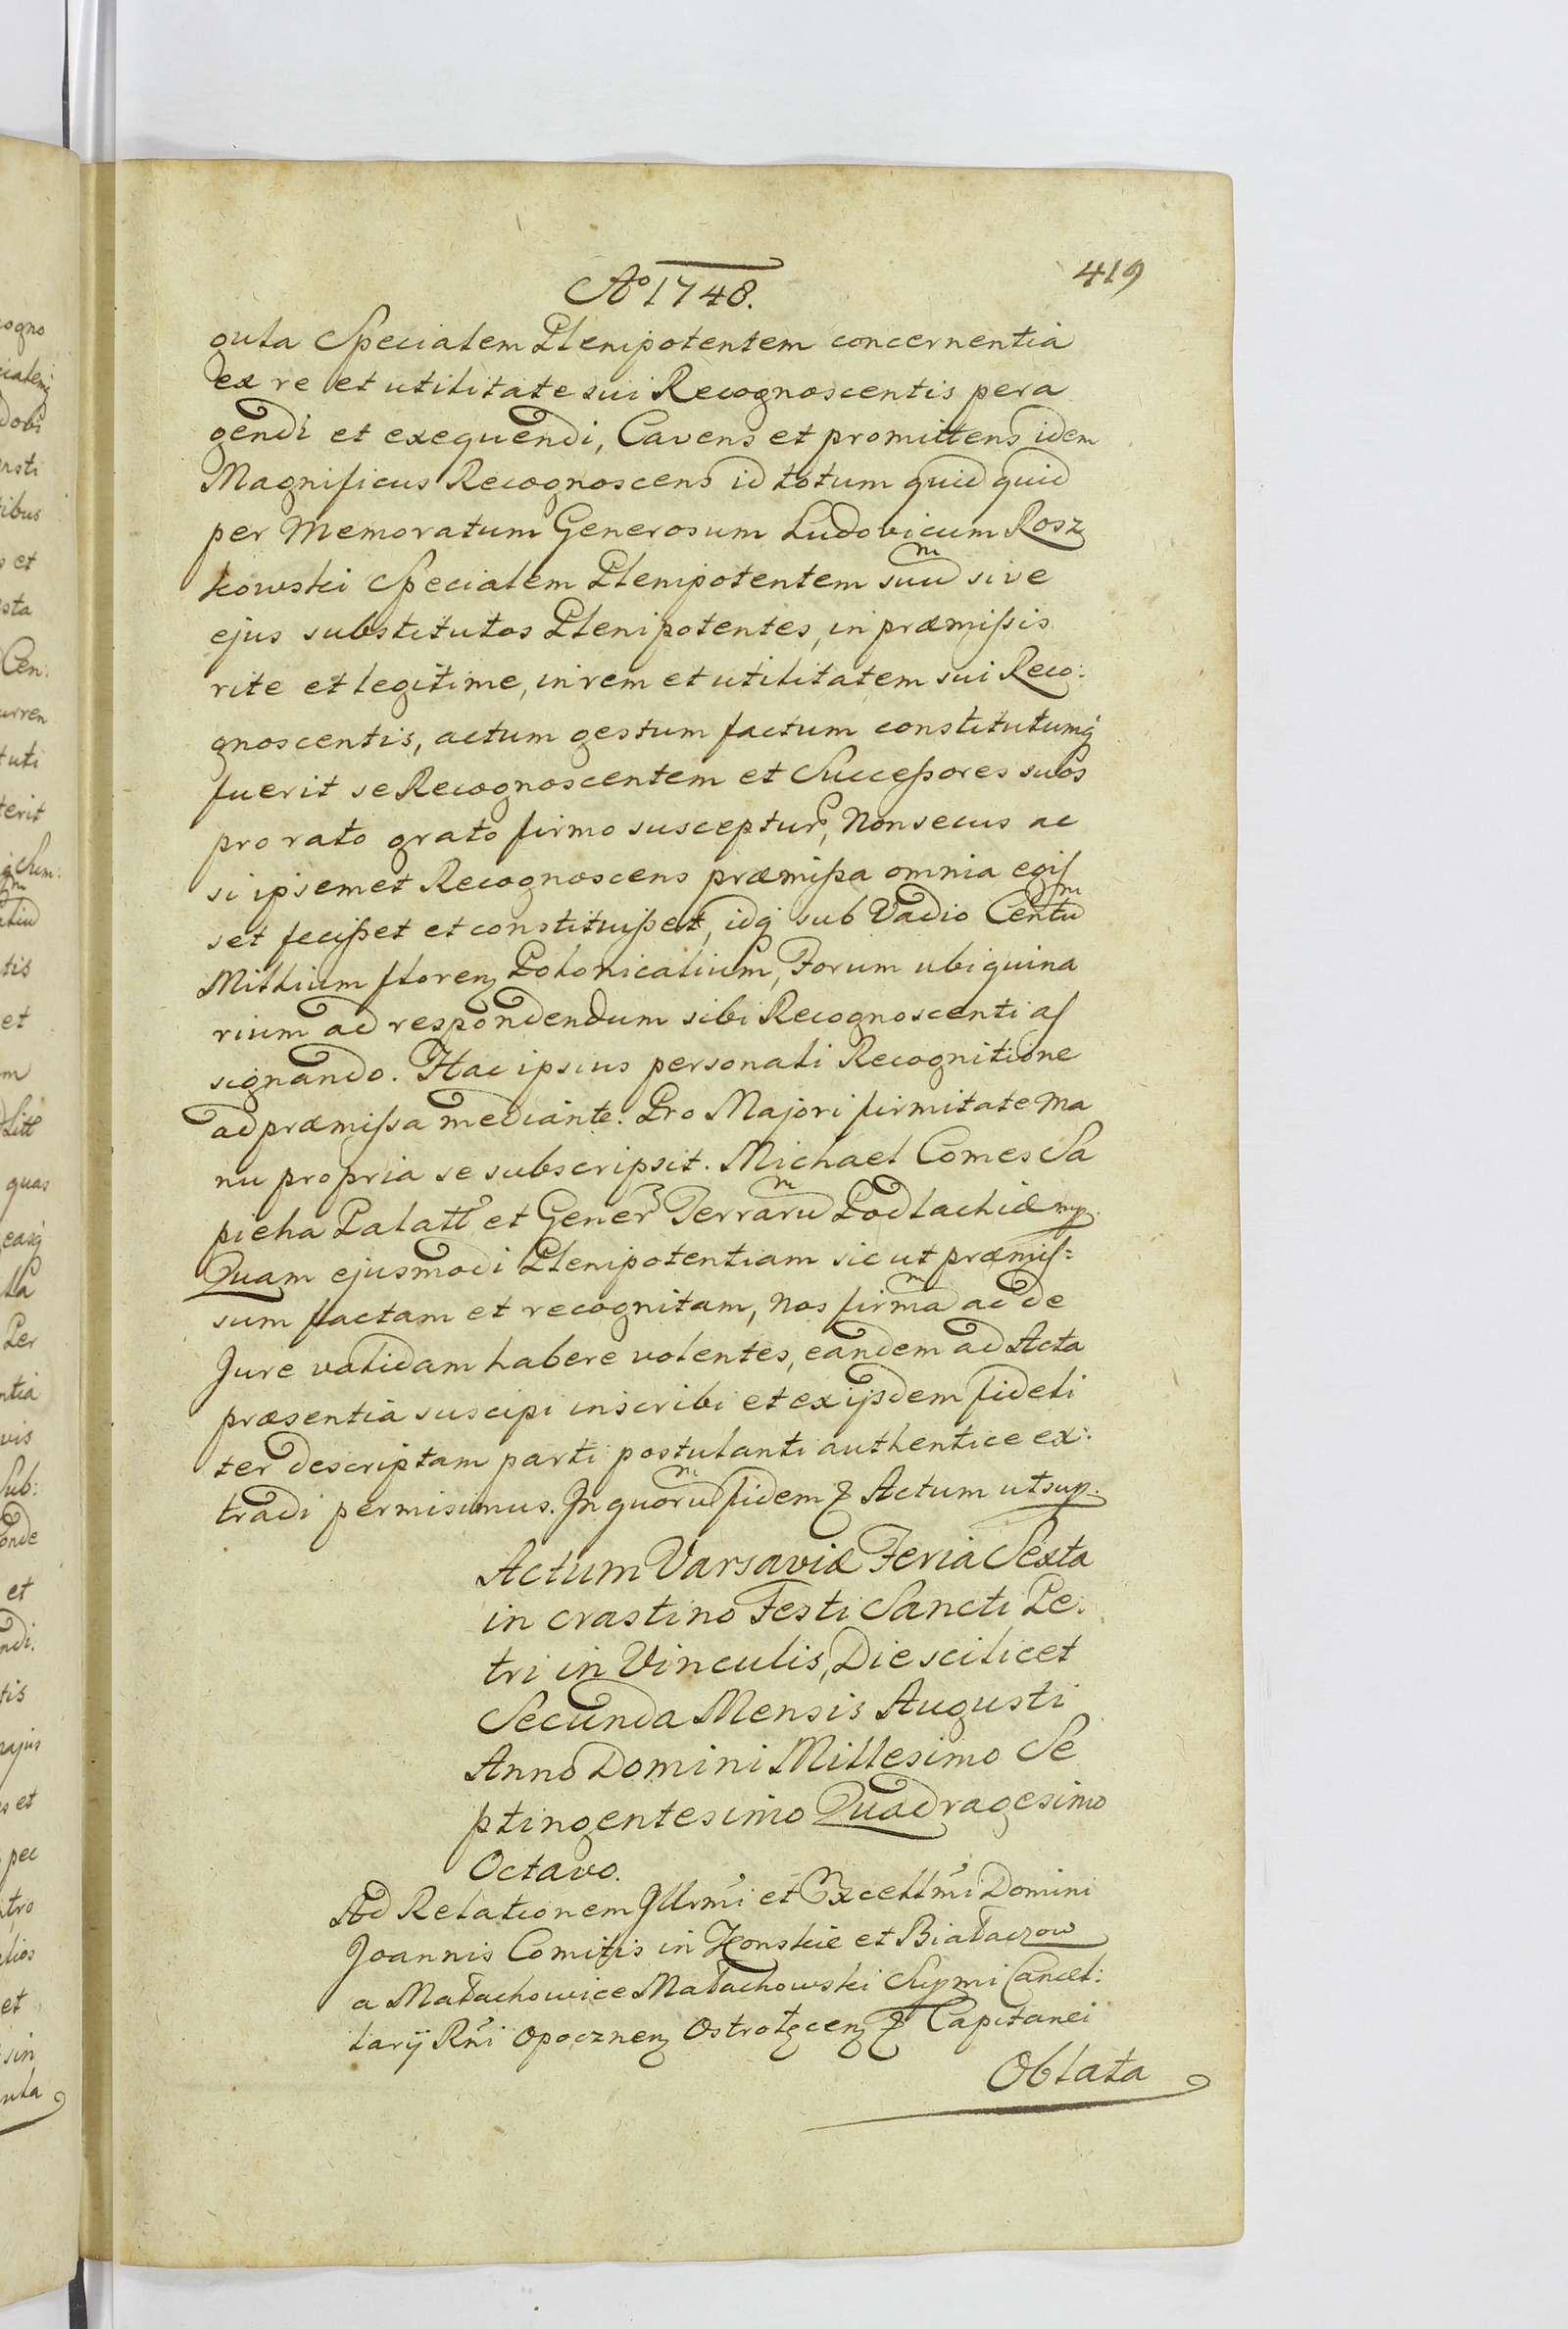 419
Aº 1748.
gula Specialem Plenipotentem concernentia
ex re et utilitate sui Recognoscentis pera
gendi et exequendi, Cavens et promittens idem
Magnificus Recognoscens id totum quid quid
per Memoratum Generosum Ludovicum Rosz
kowski Specialem Plenipotentem suum sive
ejus substitutos Plenipotentes, in præmissis
rite et legitime, in rem et utilitatem sui Reco:
gnoscentis, actum gestum factum constitutumq
fuerit se Recognoscentem et Successores suos
pro rato grato firmo suscepturos, Non secus ac
si ipsemet Recognoscens præmissa omnia egis
set fecisset et constituisset, idq sub Vadio Centum
Millium floren Polonicalium, Forum ubi quina
rium ad respondendum sibi Recognoscenti as
signando. Hac ipsius personali Recognitione
ad præmissa mediante. Pro Majori firmitate Ma
nu propria se subscripsit. Michael Comes Sa
pieha Palatt et Gener Terrarum Podlachiæ mp.
Quam ejusmodi Plenipotentiam sic ut præmis=
sum factam et recognitam, Nos firmam ac de
Jure validam habere volentes, eandem ad Acta
præsentia suscipi inscribi et ex ijsdem fideli
ter descriptam parti postulanti authentice ex:
tradi permisimus. In quorum fidem & Actum ut sup.
Actum Varsaviæ Feria Sexta
in crastino Festi Sancti Pe:
tri in Vinculis, Die scilicet
Secunda Mensis Augusti
Anno Domini Millesimo Se
ptingentesimo Quadragesimo
Octavo.
Ad Relationem Illrmi et Excellmi Domini
Joannis Comitis in Konskie et Białaczow
a Małachowice Małachowski Supmi Cancel:
larij Rni Opocznen Ostrołęcen & Capitanei
Oblata